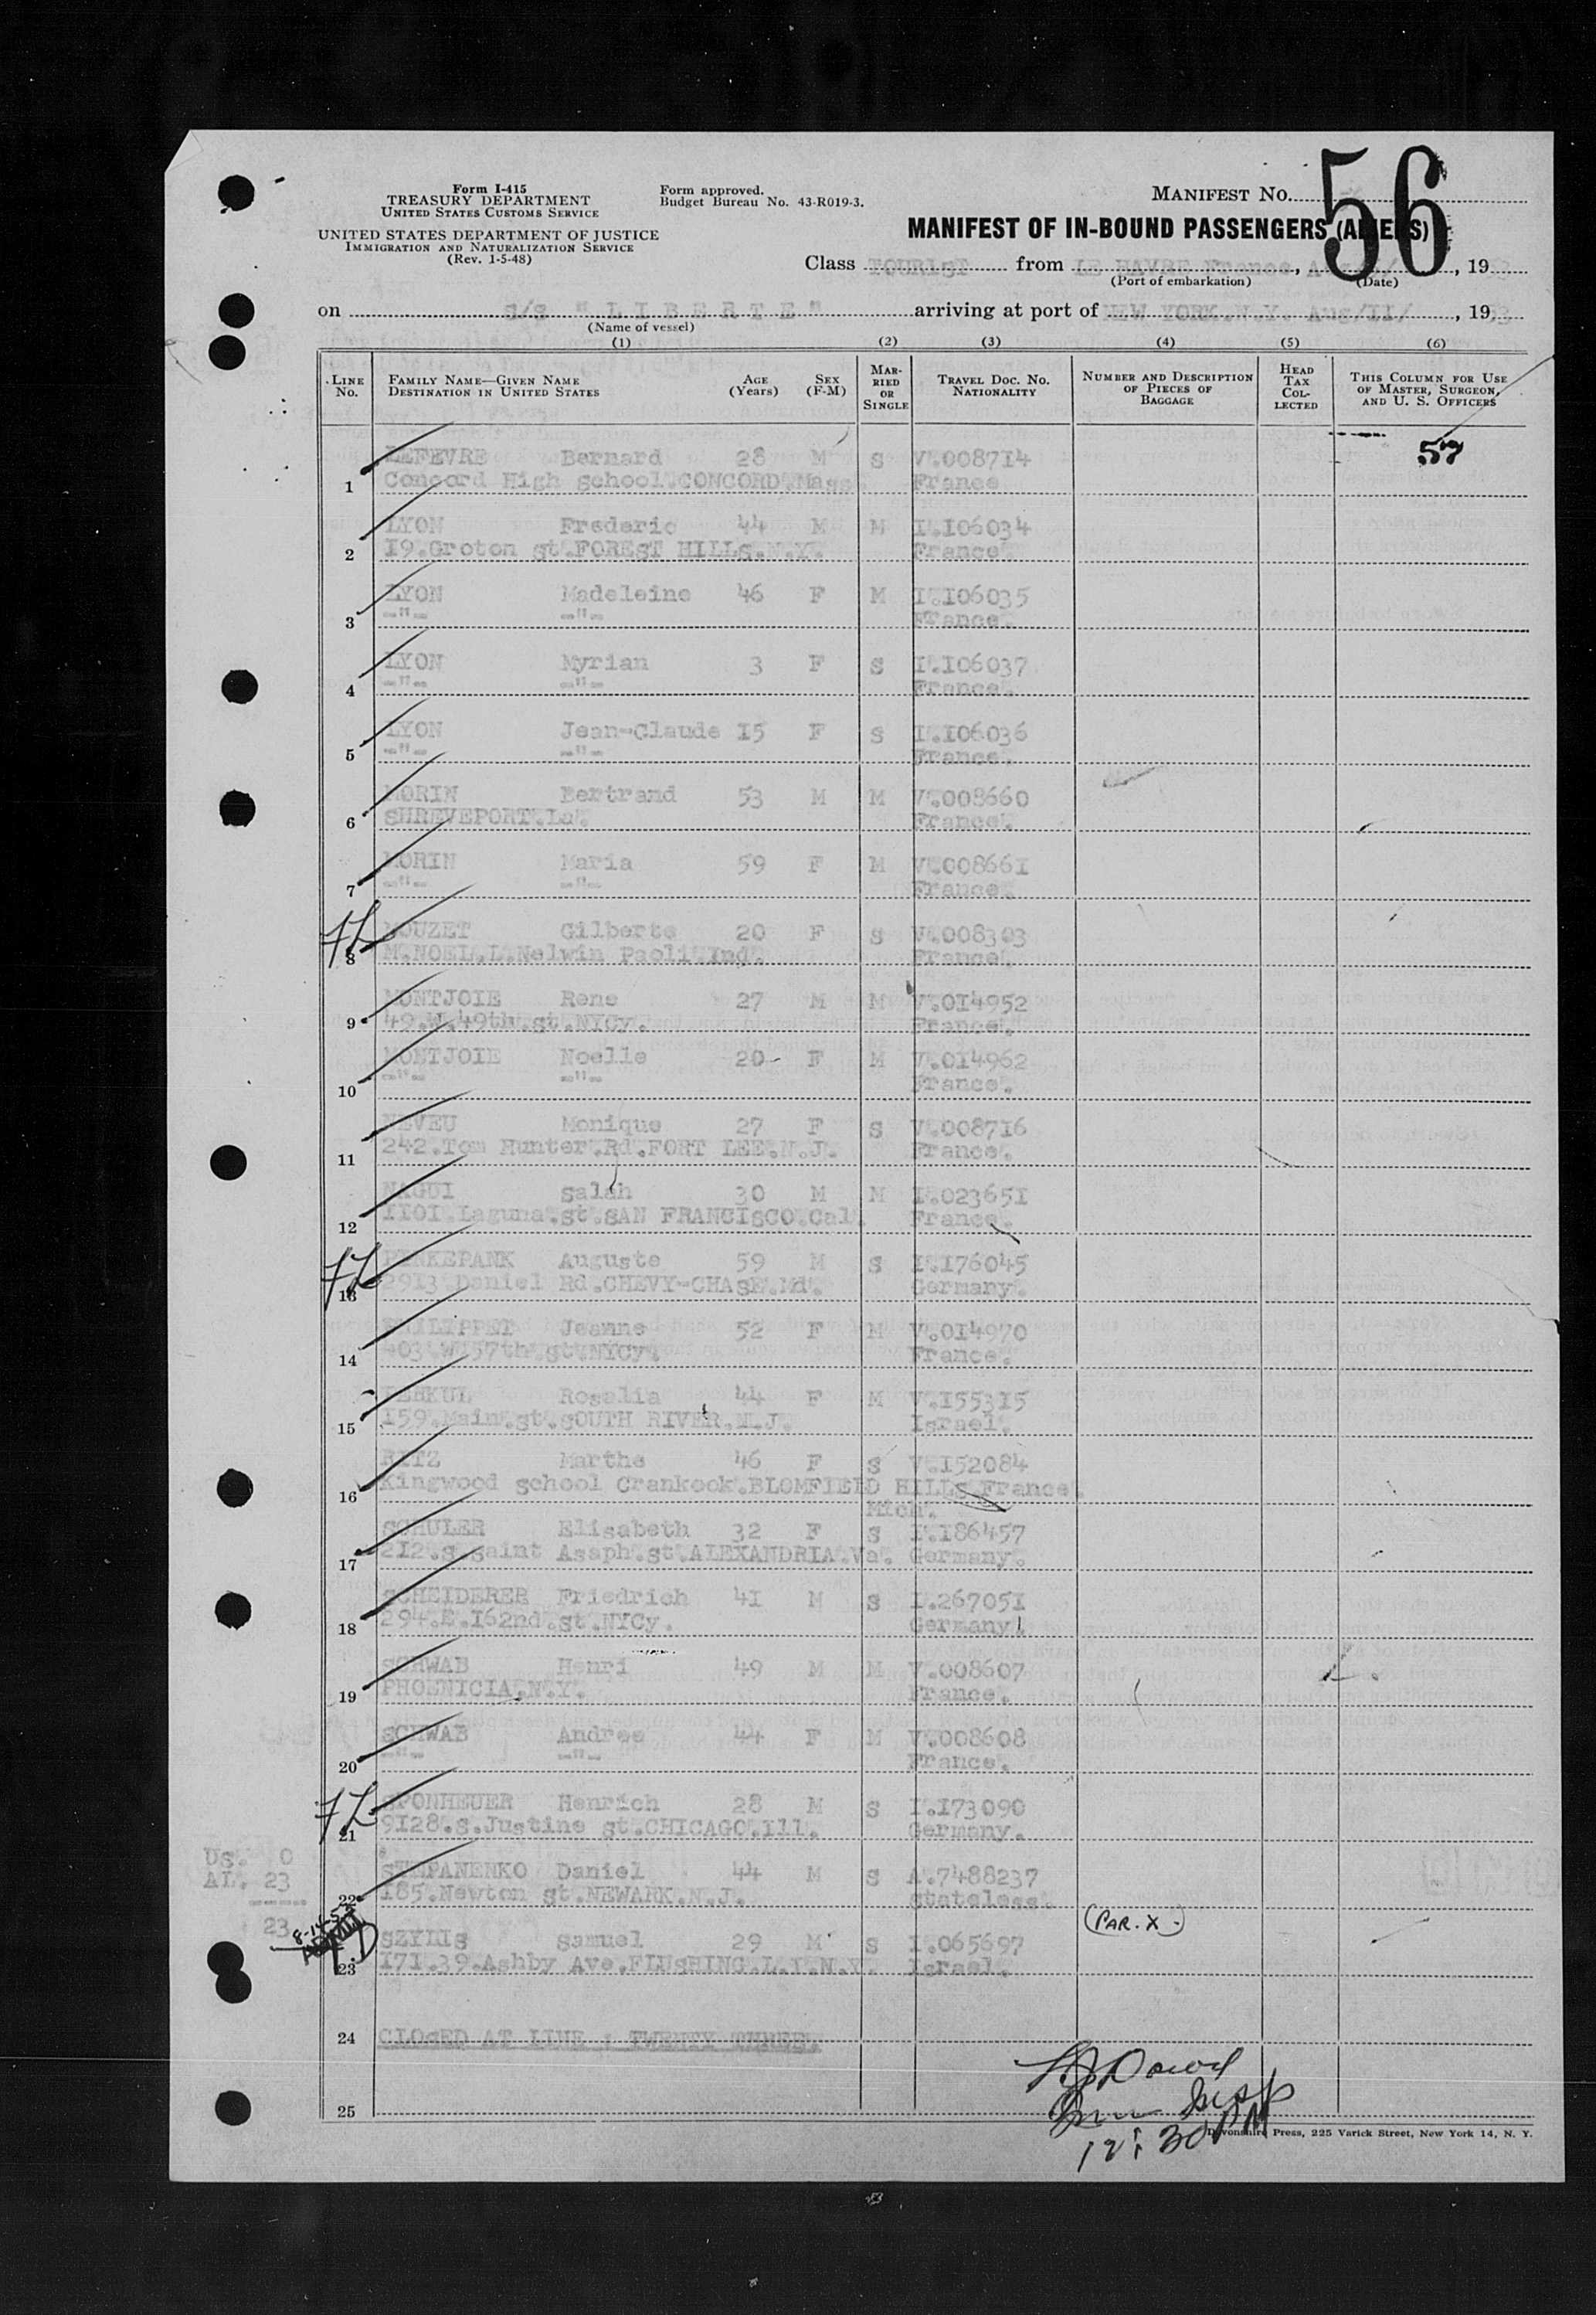 Form I-415
TREASURY DEPARTMENT
UNITED STATES CUSTOMS SERVICE
UNITED STATES DEPARTMENT OF JUSTICE
IMMIGRATION AND NATURALIZATION SERVICE
(Rev. 1-5-48)
Form approved.
Budget Bureau No. 43-R019-3.
MANIFEST NO. 56
MANIFEST OF IN-BOUND PASSENGERS (ALIENS)
Class TOURIST from LE HAVRE France, , 19
(Port of embarkation) (Date)
on S/S "LIBERTE" arriving at port of NEW YORK.N.Y. Aug/II/ , 1953
(Name of vessel)
(1) (2) (3) (4) (5) (6)
LINE No. FAMILY NAME—GIVEN NAME DESTINATION IN UNITED STATES AGE (Years) SEX (F-M) MARRIED OR SINGLE TRAVEL DOC. NO. NATIONALITY NUMBER AND DESCRIPTION OF PIECES OF BAGGAGE HEAD TAX COLLECTED THIS COLUMN FOR USE OF MASTER, SURGEON, AND U. S. OFFICERS
57
LEFEVRE Bernard 28 M S V.008714
1 Concord High school.CONCORD.Mass France
LYON Frederic 44 M M I.I06034
2 I9.Groton st.FOREST HILLS.N.Y. France.
LYON Madeleine 46 F M I.I06035
3 -"- -"- France.
LYON Myrian 3 F S I.I06037
4 -"- -"- France.
LYON Jean-Claude I5 F S I.I06036
5 -"- -"- France.
MORIN Bertrand 53 M M V.008660
6 SHREVEPORT.La. France.
MORIN Maria 59 F M V.00866I
7 -"- -"- France.
MOUZET Gilberte 20 F S V.008303
8 M.NOEL.L.Nelwin Paoli.Ind. France.
MONTJOIE Rene 27 M M V.0I4952
9 49.W.49th.st.NYCy. France.
MONTJOIE Noelle 20 F M V.0I4962
10 -"- -"- France.
NEVEU Monique 27 F S V.0087I6
11 242.Tom Hunter.Rd.FORT LEE.N.J. France.
NAGUI Salah 30 M M I.02365I
12 II0I.Laguna.st.SAN FRANCISCO.Cal. France.
PERKEPANK Auguste 59 M S I.I76045
13 29I3.Daniel Rd.CHEVY-CHASE.Md. Germany.
PHILIPPET Jeanne 52 F M V.0I4970
14 403.W.57th.st.NYCy. France.
Rosalia 44 F M V.I553I5
15 I59.Main.st.SOUTH RIVER.N.J. Israel.
RITZ Marthe 46 F S V.I52084
16 Kingwood school Crankook.BLOMFIELD HILLS France.
Mich.
SCHULER Elisabeth 32 F S I.I86457
17 2I2.S.saint Asaph.st.ALEXANDRIA.Va. Germany.
SCHEIDERER Friedrich 4I M S I.26705I
18 294.E.I62nd.st.NYCy. Germany.
SCHWAB Henri 49 M M V.008607
19 PHOENICIA.N.Y. France.
SCHWAB Andree 44 F M V.008608
20 -"- -"- France.
SPONHEUER Henrich 28 M S I.I73090
21 9I28.S.Justine st.CHICAGO.Ill. Germany.
US. 0
AL. 23
23
STEPANENKO Daniel 44 M S A.7488237
22 I85.Newton st.NEWARK.N.J. stateless.
(PAR. X-)
8-14-53
Samuel 29 M S I.065697
23 I7I.39.Ashby Ave.FLUSHING.L.I.N.Y. Israel.
24 CLOSED AT LINE : TWENTY THREE.
25
12:30 PM
Devonshire Press, 225 Varick Street, New York 14, N. Y.